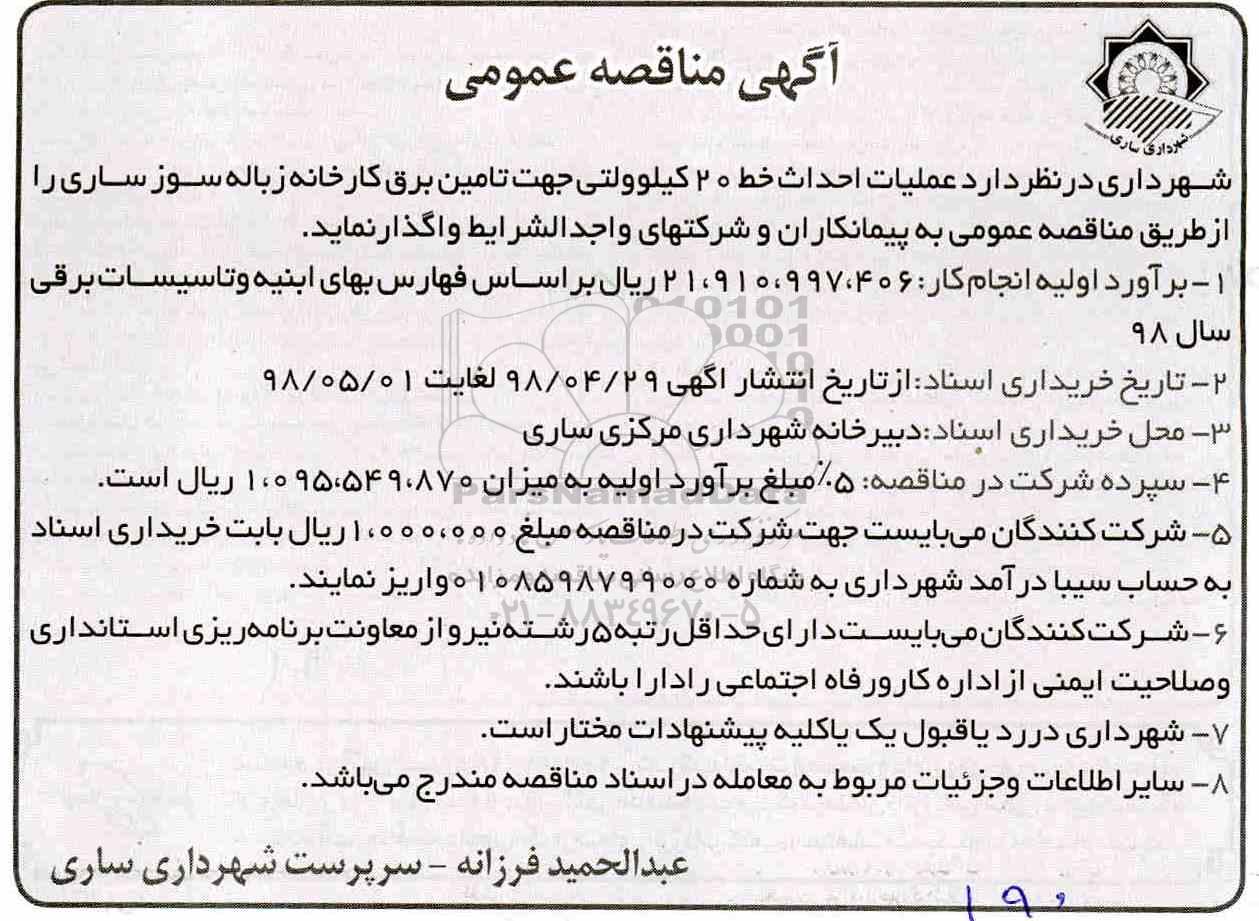 آگهی مناقصه عمومی
شهرداری ساری
شهرداری در نظر دارد عملیات احداث خط ۲۰ کیلوولتی جهت تامین برق کارخانه زباله سوز ساری را
از طریق مناقصه عمومی به پیمانکاران و شرکتهای واجدالشرایط واگذار نماید.
۱- برآورد اولیه انجام کار: ۲۱،۹۱۰،۹۹۷،۴۰۶ ریال بر اساس فهارس بهای ابنیه وتاسیسات برقی
سال ۹۸
۲- تاریخ خریداری اسناد: از تاریخ انتشار اگهی ۹۸/۰۴/۲۹ لغایت ۹۸/۰۵/۰۱
۳- محل خریداری اسناد: دبیرخانه شهرداری مرکزی ساری
۴- سپرده شرکت در مناقصه: ۵٪ مبلغ برآورد اولیه به میزان ۱،۰۹۵،۵۴۹،۸۷۰ ریال است.
ParsNamadData
۵- شرکت کنندگان می‌بایست جهت شرکت در مناقصه مبلغ ۱،۰۰۰،۰۰۰ ریال بابت خریداری اسناد
به حساب سیبا درآمد شهرداری به شماره ۰۱۰۸۵۹۸۷۹۹۰۰۰ واریز نمایند.
۰۲۱-۸۸۳۴۹۶۷۰-۵
۶- شرکت کنندگان می‌بایست دارای حداقل رتبه ۵ رشته نیرو از معاونت برنامه‌ریزی استانداری
وصلاحیت ایمنی از اداره کار ورفاه اجتماعی را دارا باشند.
۷- شهرداری در رد یا قبول یک یا کلیه پیشنهادات مختار است.
۸- سایر اطلاعات وجزئیات مربوط به معامله در اسناد مناقصه مندرج می‌باشد.
عبدالحمید فرزانه - سرپرست شهرداری ساری